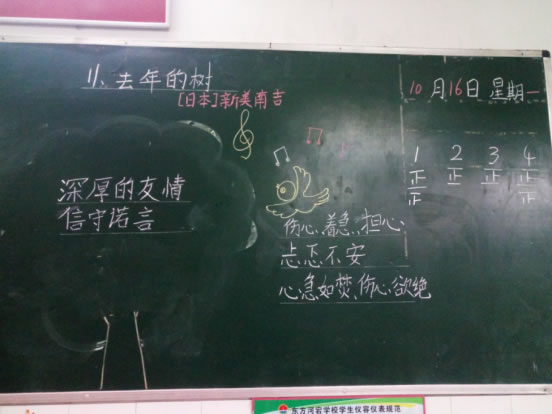 11、去年的树
[日本]新美南吉
10月16日 星期一
深厚的友情
信守诺言
伤心、着急、担心、
忐忑不安
心急如焚、伤心欲绝
1 2 3 4
正 正 正 正
正 正
东方河宕学校学生仪容仪表规范